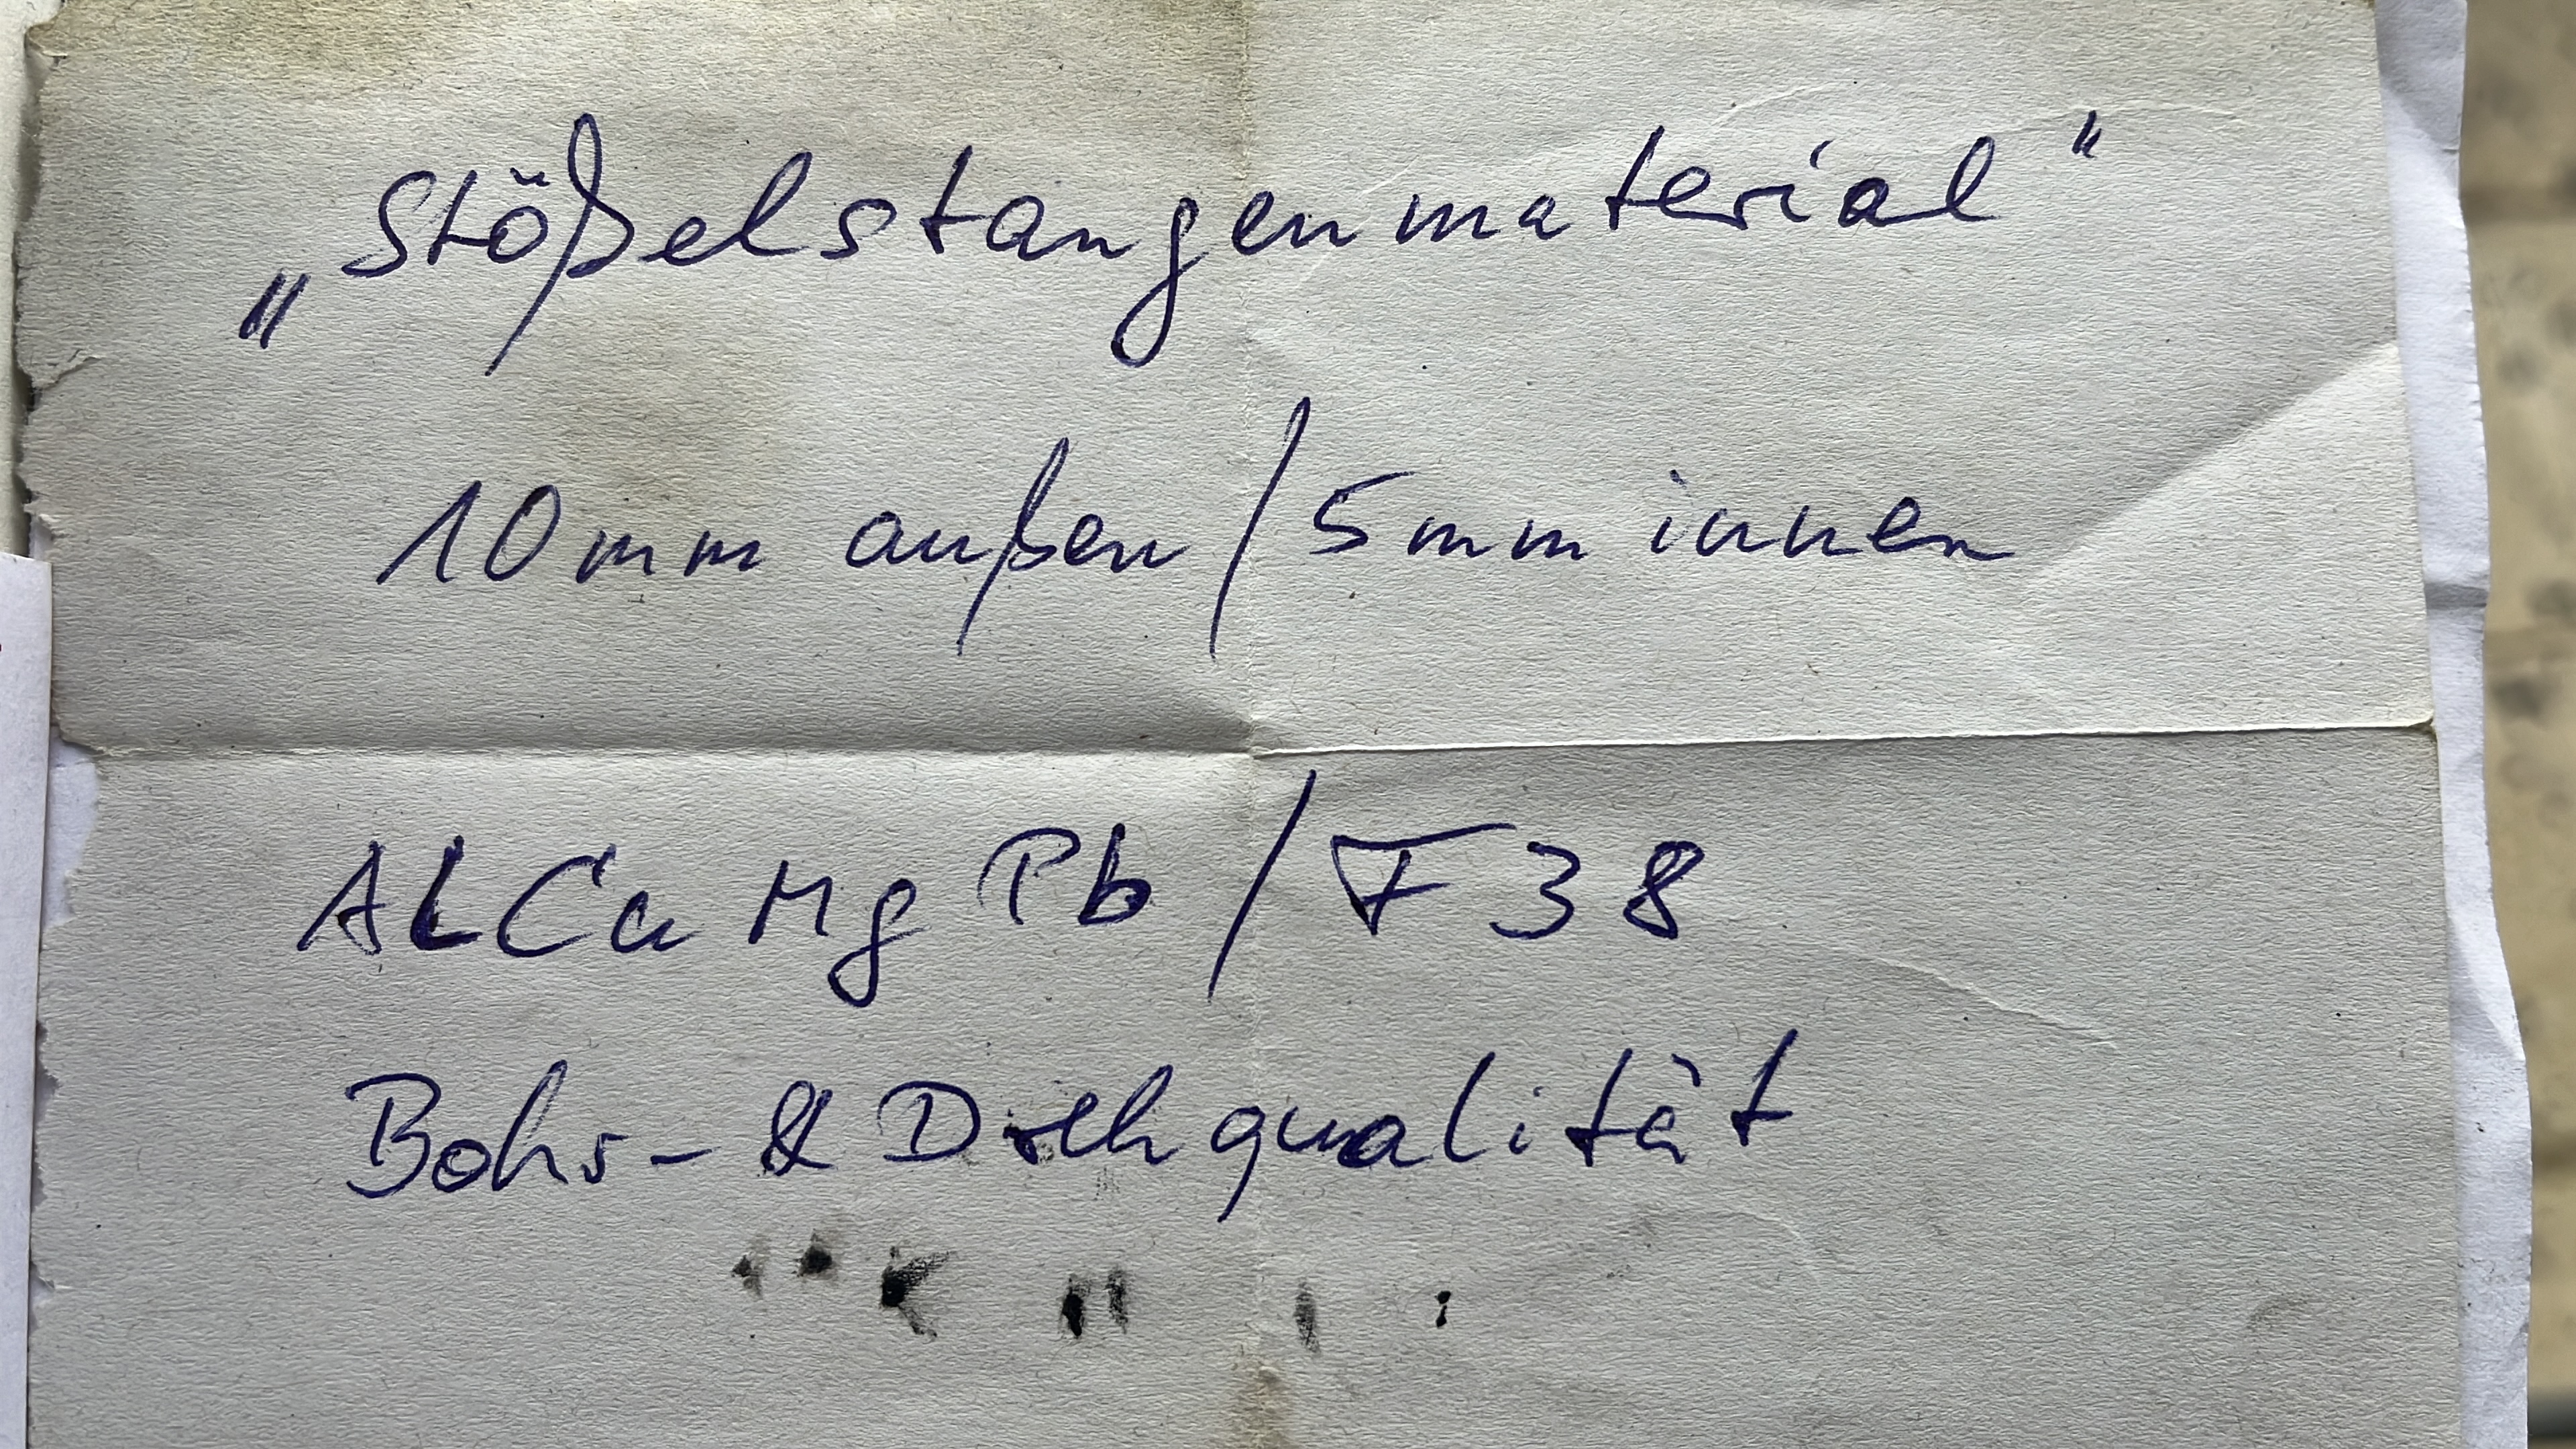 „Stößelstangenmaterial“
10mm außen / 5mm innen
ALCu Mg Pb / F 38
Bohr- & Drehqualität